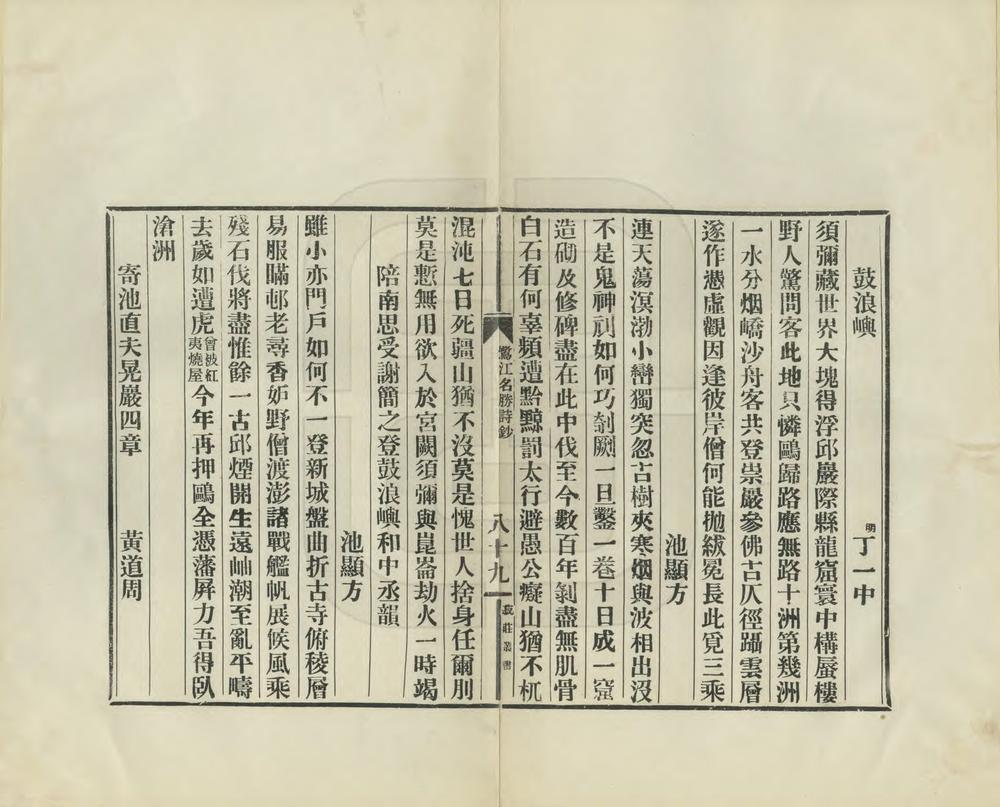 鼓浪嶼
明丁一中
須彌藏世界大塊得浮邱巖際縣龍窟寰中構蜃樓
野人驚問客此地只憐鷗歸路應無路十洲第幾洲
一水分烟嶠沙舟客共登崇巖參佛古仄徑躡雲層
遂作憑虛觀因逢彼岸僧何能拋紱冕長此覓三乘
池顯方
連天蕩溟渤小巒獨突忽古樹夾寒烟與波相出沒
不是鬼神刓如何巧剞劂一旦鑿一卷十日成一窟
造砌及修碑盡在此中伐至今數百年剝盡無肌骨
白石有何辜頻遭黔黥罰太行避愚公癡山猶不杌
鷺江名勝詩鈔
八十九
菽莊叢書
混沌七日死疆山猶不沒莫是愧世人捨身任爾刖
莫是慙無用欲入於宮闕須彌與崑崙劫火一時竭
陪南思受謝簡之登鼓浪嶼和中丞韻
池顯方
雖小亦門戶如何不一登新城盤曲折古寺俯稜層
易服瞞邨老尋香妬野僧渡澎諸戰艦帆展候風乘
殘石伐將盡惟餘一古邱煙開生遠岫潮至亂平疇
去歲如遭虎曾被紅夷燒屋今年再押鷗全憑藩屏力吾得臥
滄洲
寄池直夫晃巖四章
黃道周